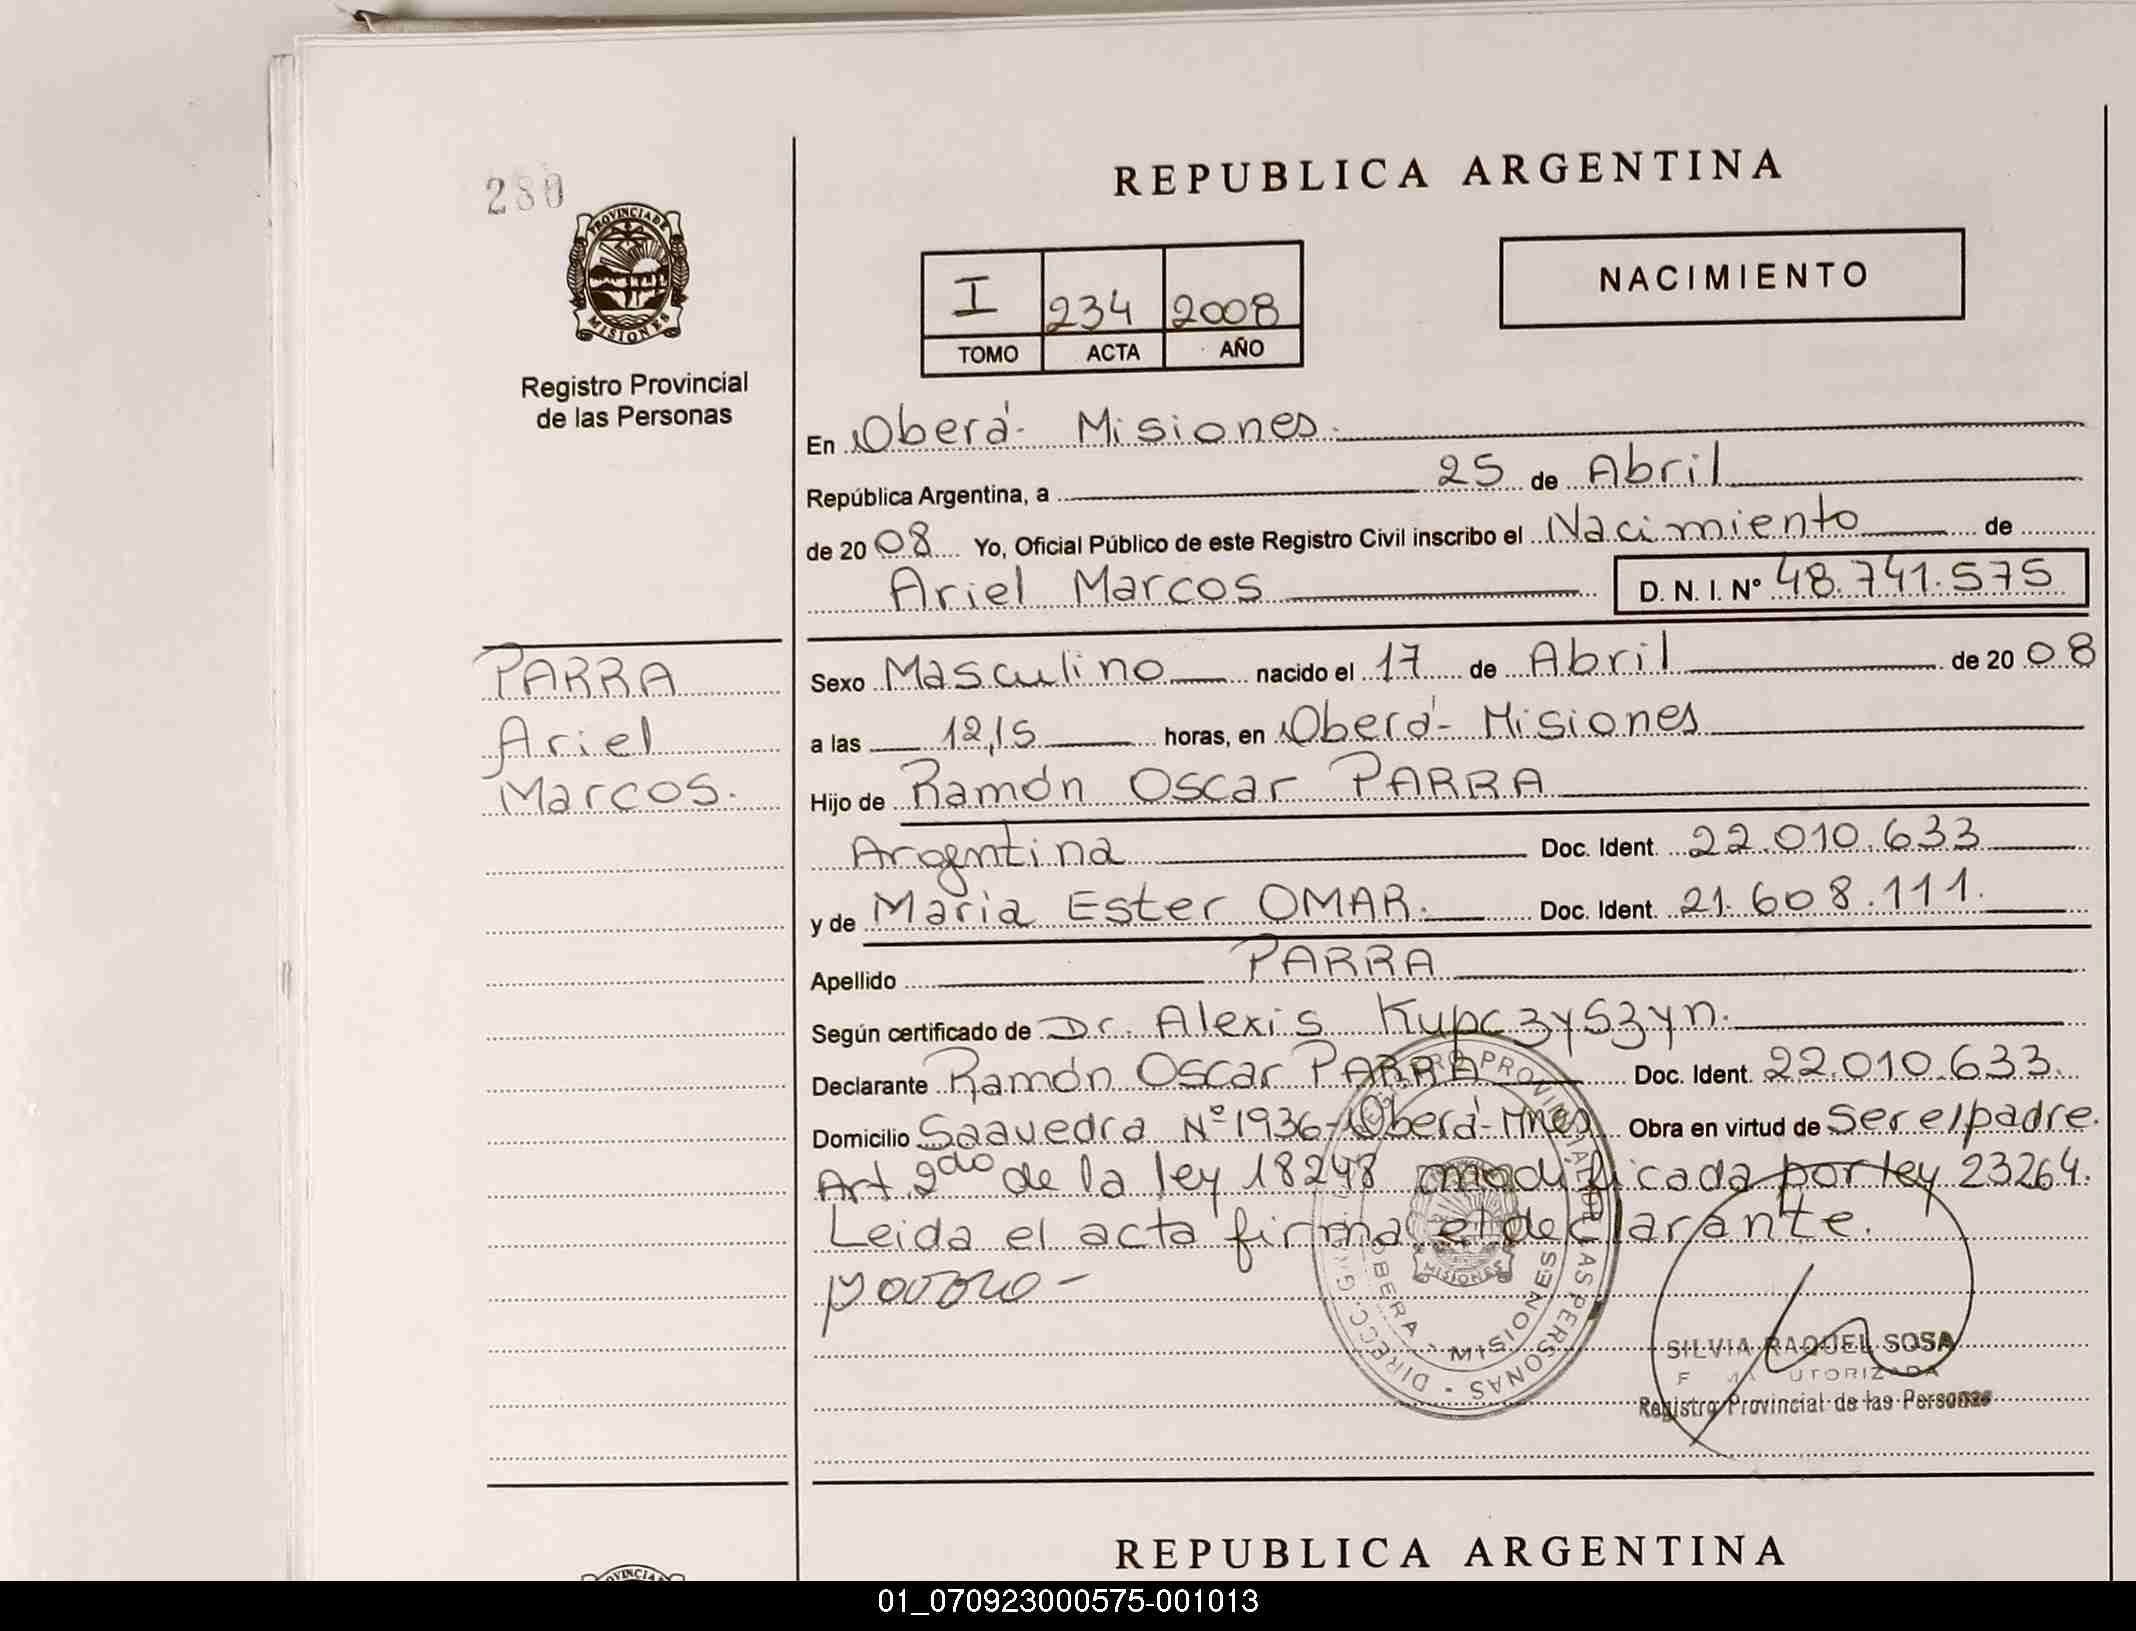 280
PROVINCIA DE
MISIONES
Registro Provincial
de las Personas
REPUBLICA ARGENTINA
I 234 2008
TOMO ACTA AÑO
NACIMIENTO
En Oberá- Misiones.
República Argentina, a 25 de Abril
de 20 08 Yo, Oficial Público de este Registro Civil inscribo el Nacimiento de
Ariel Marcos D. N. I. Nº 48.741.575
PARRA
Ariel
Marcos.
Sexo Masculino nacido el 17 de Abril de 20 08
a las 12,15 horas, en Oberá- Misiones
Hijo de Ramón Oscar PARRA
Argentina Doc. Ident. 22.010.633
y de Maria Ester OMAR. Doc. Ident. 21.608.111.
Apellido PARRA
Según certificado de Dr. Alexis Kupczyszyn.
Declarante Ramón Oscar PARRA Doc. Ident. 22.010.633.
Domicilio Saavedra Nº 1936-Oberá-Mnes Obra en virtud de Ser el padre.
Art 2do de la ley 18248 modificada por ley 23264.
Leida el acta firma el declarante.
MISIONES
OBERA - MISIONES
SILVIA RAQUEL SOSA
Registro Provincial de las Personas
REPUBLICA ARGENTINA
01_070923000575-001013